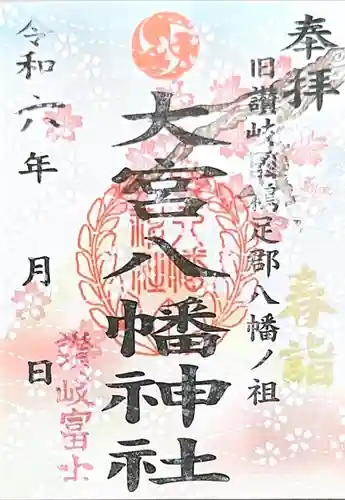 奉拝
旧讃岐国鵜足郡八幡ノ祖
春詣
大宮八幡神社
令和六年 月 日
讃岐富士